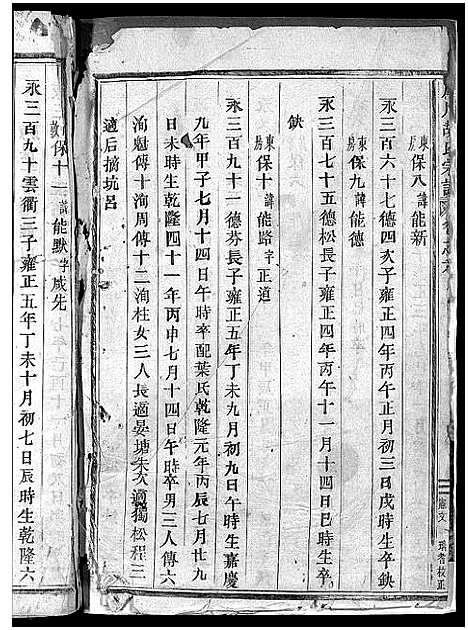 東房保八諱能新
永三百六十七德四次子雍正四年丙午正月初三日戌時生卒缺
東房保九諱能德
永三百七十五德松長子雍正四年丙午十一月十四日巳時生卒
缺
東房保十諱能路字正道
永三百九十一德芬長子雍正五年丁未九月初九日午時生嘉慶
九年甲子七月十四日午時卒配葉氏乾隆元年丙辰七月廿九
日未時生乾隆四十一年丙申七月十四日午時卒男三人傳六
洵魁傳十洵周傳十二洵柱女三人長適晏塘朱次適獨松程三
適后摘坑呂
保十一諱能默字咸先
永三百九十雲衢三子雍正五年丁未十月初七日辰時生乾隆六